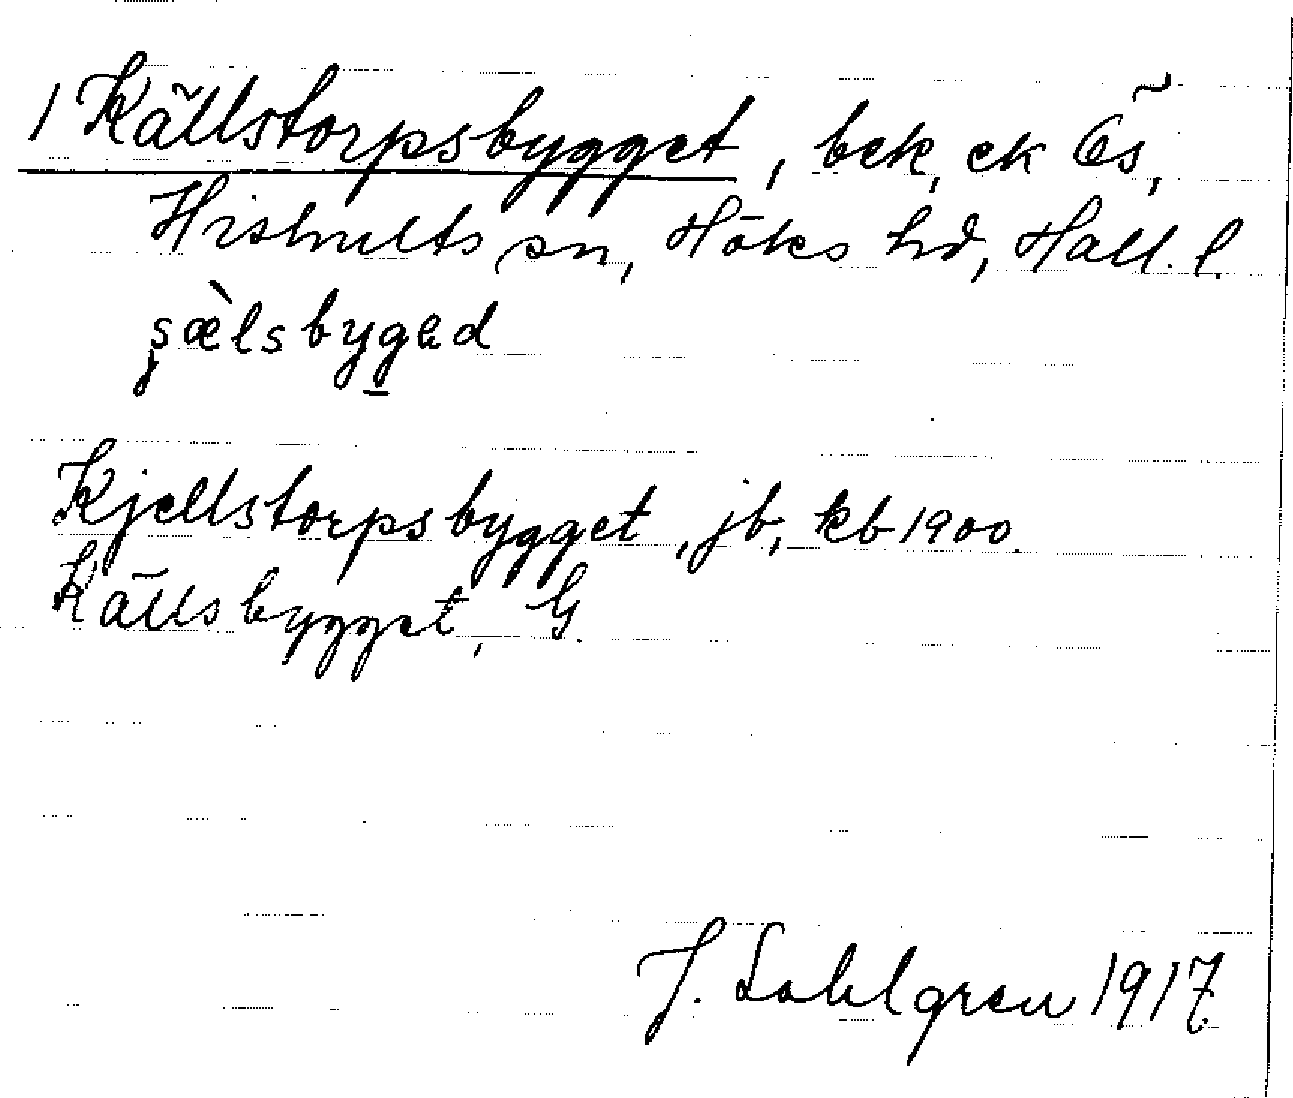 1 Källstorpsbygget, bek, ek Ös,
Hishults sn, Höks hd, Hall. l.
Kjellstorpsbygget, jb, kb 1900.
Källsbygget, G.
J. Sahlgren 1917